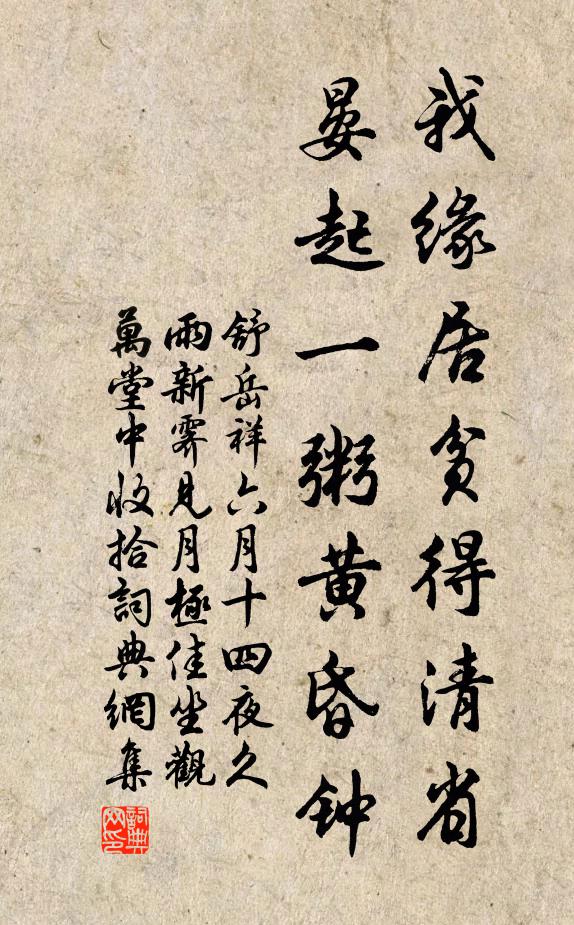 我缘居贫得清省
晏起一粥黄昏钟
舒岳祥六月十四夜久
雨新霁见月極佳坐觀
萬堂中收拾詞典網集
詞典网印